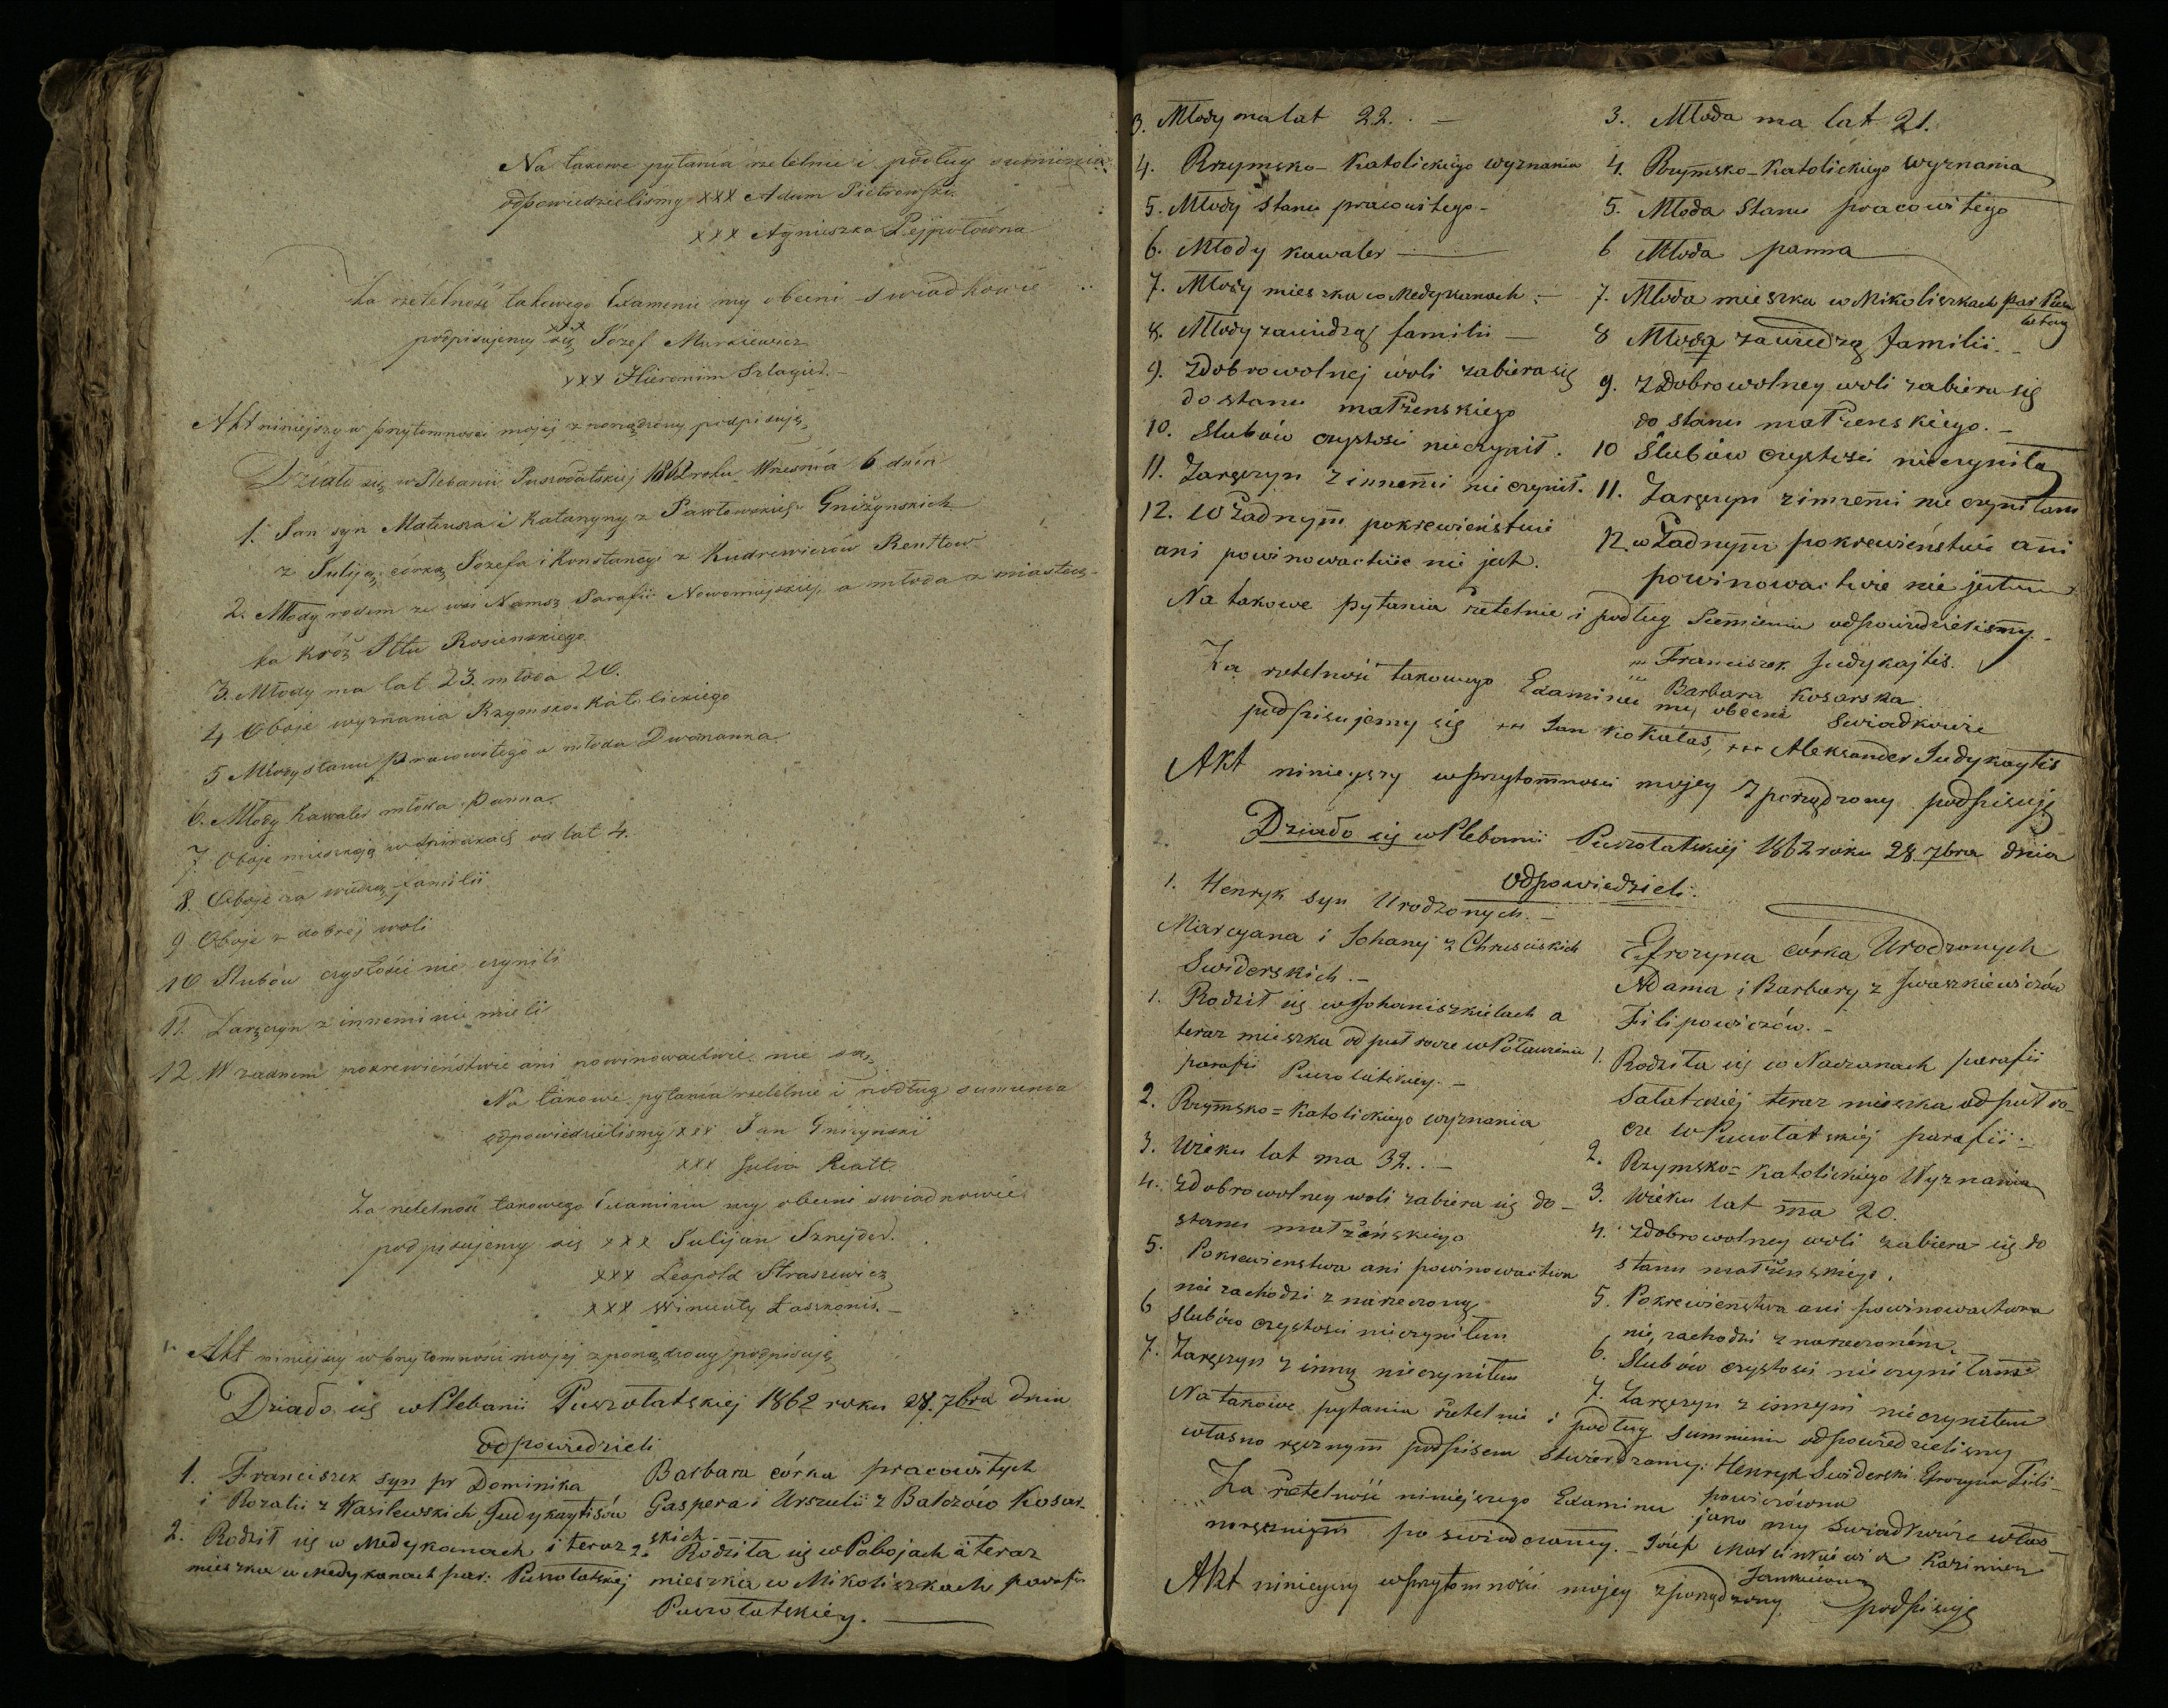 Na takowe pytania rzetelnie i podług sumienia
odpowiedzieliśmy xxx Adam Pietrowski
xxx Agnieszka Pejpołówna
Za rzetelność takowego Examenu my obecni swiadkowie
podpisujemy się xxx Józef Markiewicz
xxx Hieronim Szlagier.
Akt niniejszy w przytomności mojej zporządzony podpisuję
Działo się w Plebanii Puszołatskiej 1862 roku Września 6 dnia
1. Jan syn Mateusza i Katarzyny z Pawłowskich Gniżynskich
z Juliją córką Józefa i Konstancyi z Kudrewiczów Renttow
2. Młody rodem ze wsi Parafii Nowomiejskiej, a młoda z miastecz-
ka Króż Pttu Rosienskiego.
3. Młody ma lat 23. młoda 20.
4 Oboje wyznania Rzymsko-Katolickiego
5 Młody stanu pracowitego a młoda Dworzanka
6. Młody Kawaler młoda Panna.
7 Oboje mieszkają w od lat 4.
8. Oboje za wiedzą familii
9 Oboje z dobrej woli
10 Slubów czystości nie czynili
11. Zaręczyn z innemi nie mieli
12 W żadnem pokrewieństwie ani powinowactwie nie są,
Na takowe pytania rzetelnie i podług sumienia
odpowiedzieliśmy xxx Jan Gniżynski
xxx Julia Reatt.
Za rzetelność takowego Examinu my obecni swiadkowie
podpisujemy się xxx Julijan Sznejder.
xxx Leopold Straszewicz
xxx Wincenty Łaszkonis. –
Akt niniejszy w przytomności mojej zporządzony podpisuję
Działo się w Plebanii Puszołatskiej 1862 roku 28. 7bra dnia
odpowiedzieli
1. Franciszek syn pr Dominika
i Rozalii z Wasilewskich Judykaytisów
2. Rodził się w Medykanach i teraz
mieszka w Medykanach par: Puszołatskiej
Barbara córka pracowitych
Gaspera i Urszulii z Balczów Kosar-
skich
2. Rodziła się w Pobojach a teraz
mieszka w Mikoliszkach parafii
Puszołatskiey.
3. Młody ma lat 22. –
4. Rzymsko-Katolickiego wyznania
5. Młody stanu pracowitego –
6. Młody kawaler
7. Młody mieszka w Medykanach. –
8. Młody za wiedzą familii –
9. Z dobrowolnej woli zabiera się
do stanu małżenskiego
10. Slubów czystości nie czynił.
11. Zaręczyn z innemi nie czynił.
12. W żadnym pokrewieństwie
ani powinowactwie nie jest.
3. Młoda ma lat 21.
4. Rzymsko-Katolickiego wyznania
5. Młoda Stanu pracowitego
6 Młoda panna
7. Młoda mieszka w Mikoliszkach par Puszo
łatsey
8 Młoda za wiedzą familii. –
9. Z Dobrowolney woli zabiera się
do stanu małżenskiego. –
10 Slubów czystości nie czyniła
11. Zaręczyn z innemi nie czyniłam
12 w Żadnym pokrewieństwie ani
powinowactwie nie jestem
Na takowe pytania rzetelnie i podług Sumienia odpowiedzieliśmy.
xxx Franciszek Judykajtis.
xxx Barbara Kosarska
Za rzetelność takowego Examinu my obecni Swiadkowie
podpisujemy się xxx Jan Kokułas, xxx Aleksander Judykaytis
Akt niniejszy w przytomności mojey zporządzony podpisuję
2. Działo się w Plebanii Puszołatskiej 1862 roku 28 7bra dnia
odpowiedzieli.
1. Henryk syn Urodzonych. –
Marcyana i Johany z Chruscickich
Swiderskich. –
1. Rodził się w Johaniszkielach a
teraz mieszka od puł rocze w
parafii Puszołatskiey. –
2. Rzymsko=Katolickiego wyznania
3. Wieku lat ma 32. –
4. Z dobrowolney woli zabiera się do –
stanu małżeńskiego
5. Pokrewienstwa ani powinowactwa
nie zachodzi z narzeczoną
6 Slubów czystości nie czyniłem
7. Zaręczyn z inną nie czyniłem
Efrozyna córka Urodzonych
Adama i Barbary z Iwaszkiewiczów
Filipowiczów. –
1. Rodziła się w Naczunach parafii
Sałatskiej teraz mieszka od puł ro-
cze w Puszołatskiej parafii. –
2. Rzymsko=Katolickiego Wyznania
3. Wieku lat ma 20.
4. Z dobrowolney woli zabiera się do
stanu małżenskiego.
5. Pokrewieństwa ani powinowactwa
nie zachodzi z narzeczoném.
6. Slubów czystości nie czyniłam
7. Zaręczyn z innym nie czyniłem
Na takowe pytania rzetelnie i podług Summienia odpowiedzieliśmy
własno ręcznym podpisem stwierdzamy: Henryk Swiderski Efrozyna Fili-
powiczówna
Za rzetelność niniejszego Examinu jako my Swiadkowie włas-
noręcznym poswiadczamy. – Józef Marcinkiewicz Kazimierz
Jankiewicz
Akt niniejszy w przytomności mojey zporządzony podpisuję